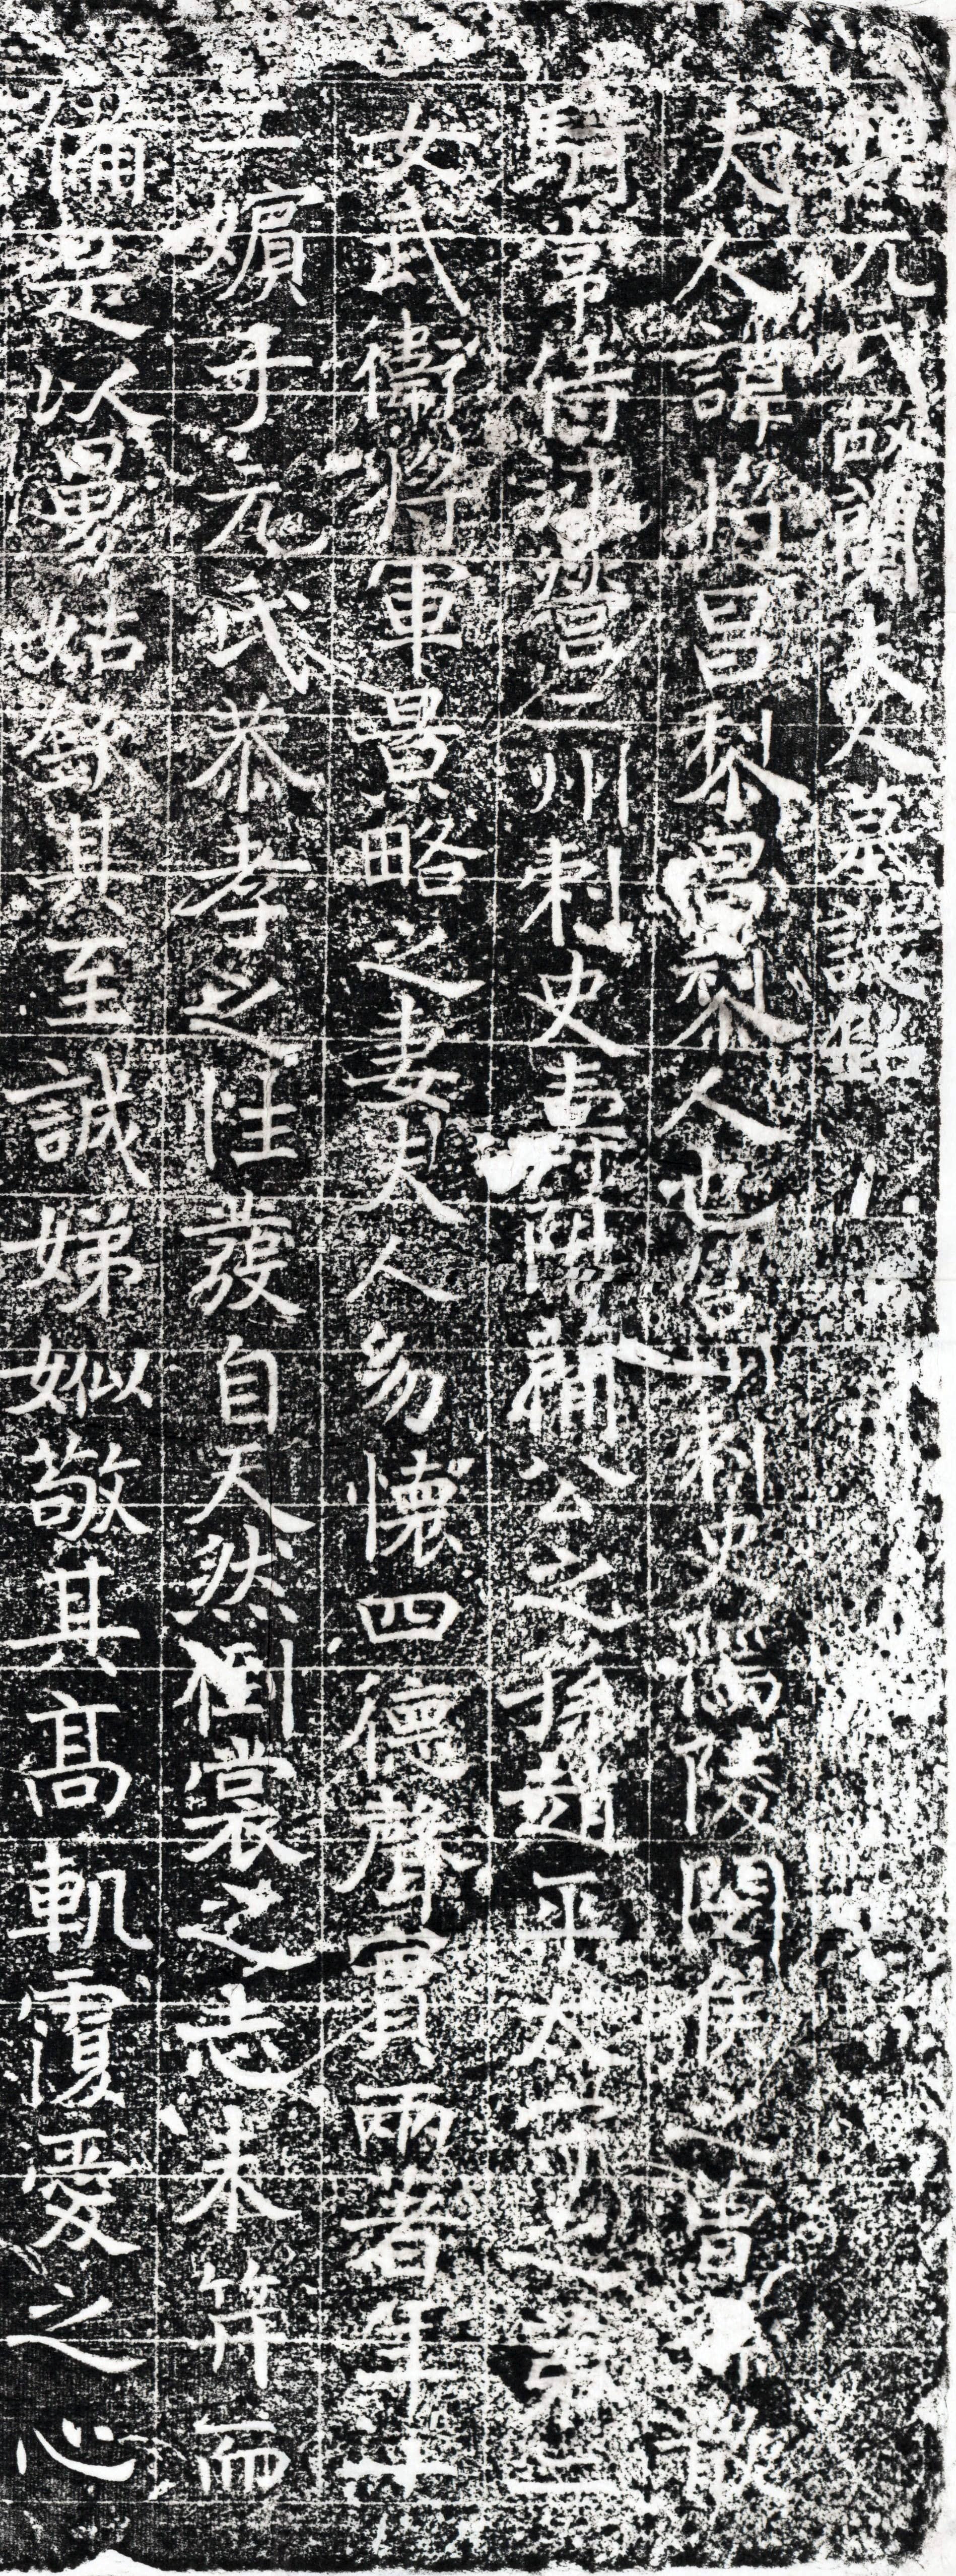 魏元氏故蘭夫人墓誌銘
夫人諱將昌黎昌黎人也刺史陵閔侯之曾孫散
騎常侍營二州刺史壽陽簡公之孫趙平太守之第二
女武衛將軍景略之妻夫人幼懷四德聲實兩著年十
二嬪于元氏恭孝之性發自天然倒裳之志未笄而
備是以舅姑欽其至誠娣姒敬其高軌覆愛之心